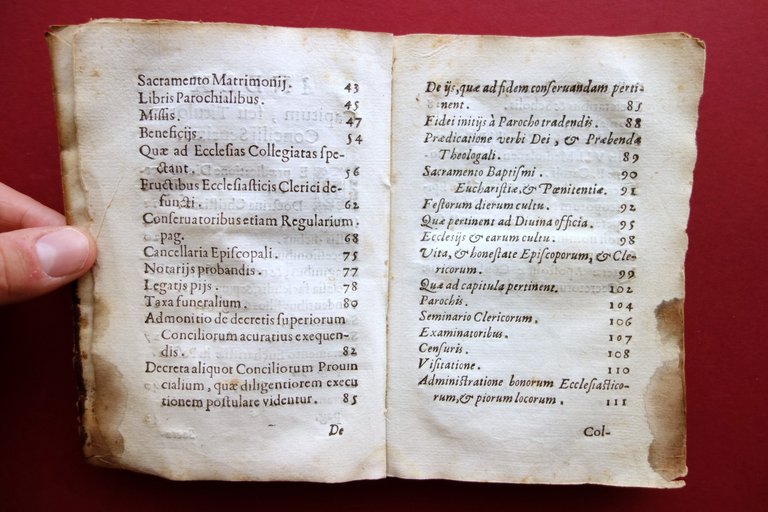 Sacramento Matrimonij. 43
Libris Parochialibus. 45
Missis. 47
Beneficijs. 54
Quæ ad Ecclesias Collegiatas spe-
ctant. 56
Fructibus Ecclesiasticis Clerici de-
functi. 62
Conseruatoribus etiam Regularium.
pag. 68
Cancellaria Episcopali. 75
Notarijs probandis. 77
Legatis pijs. 78
Taxa funeralium. 80
Admonitio de decretis superiorum
Conciliorum acuratius exequen-
dis. 82
Decreta aliquot Conciliorum Prouin
cialium, quæ diligentiorem execu
tionem postulare videntur. 85
De
De ijs, quæ ad fidem conseruandam perti-
nent. 85
Fidei initijs à Parocho tradendis. 88
Prædicatione verbi Dei, & Præbenda
Theologali. 89
Sacramento Baptismi 90
Eucharistiæ, & Pœnitentiæ. 91
Festorum dierum cultu. 92
Quæ pertinent ad Diuina officia. 95
Ecclesijs & earum cultu. 98
Vita, & honestate Episcoporum, & Cle-
ricorum. 99
Quæ ad capitula pertinent. 102
Parochis. 104
Seminario Clericorum. 106
Examinatoribus. 107
Censuris. 108
Visitatione. 110
Administratione bonorum Ecclesiastico-
rum, & piorum locorum. 111
Col-